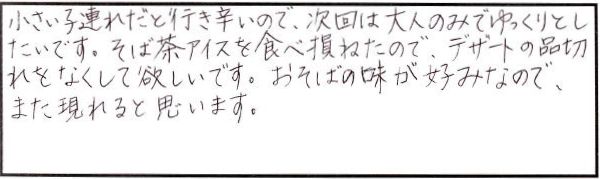 小さい子連れだと行き辛いので、次回は大人のみでゆっくりとし
たいです。そば茶アイスを食べ損ねたので、デザートの品切
れをなくして欲しいです。おそばの味が好みなので、
また現れると思います。